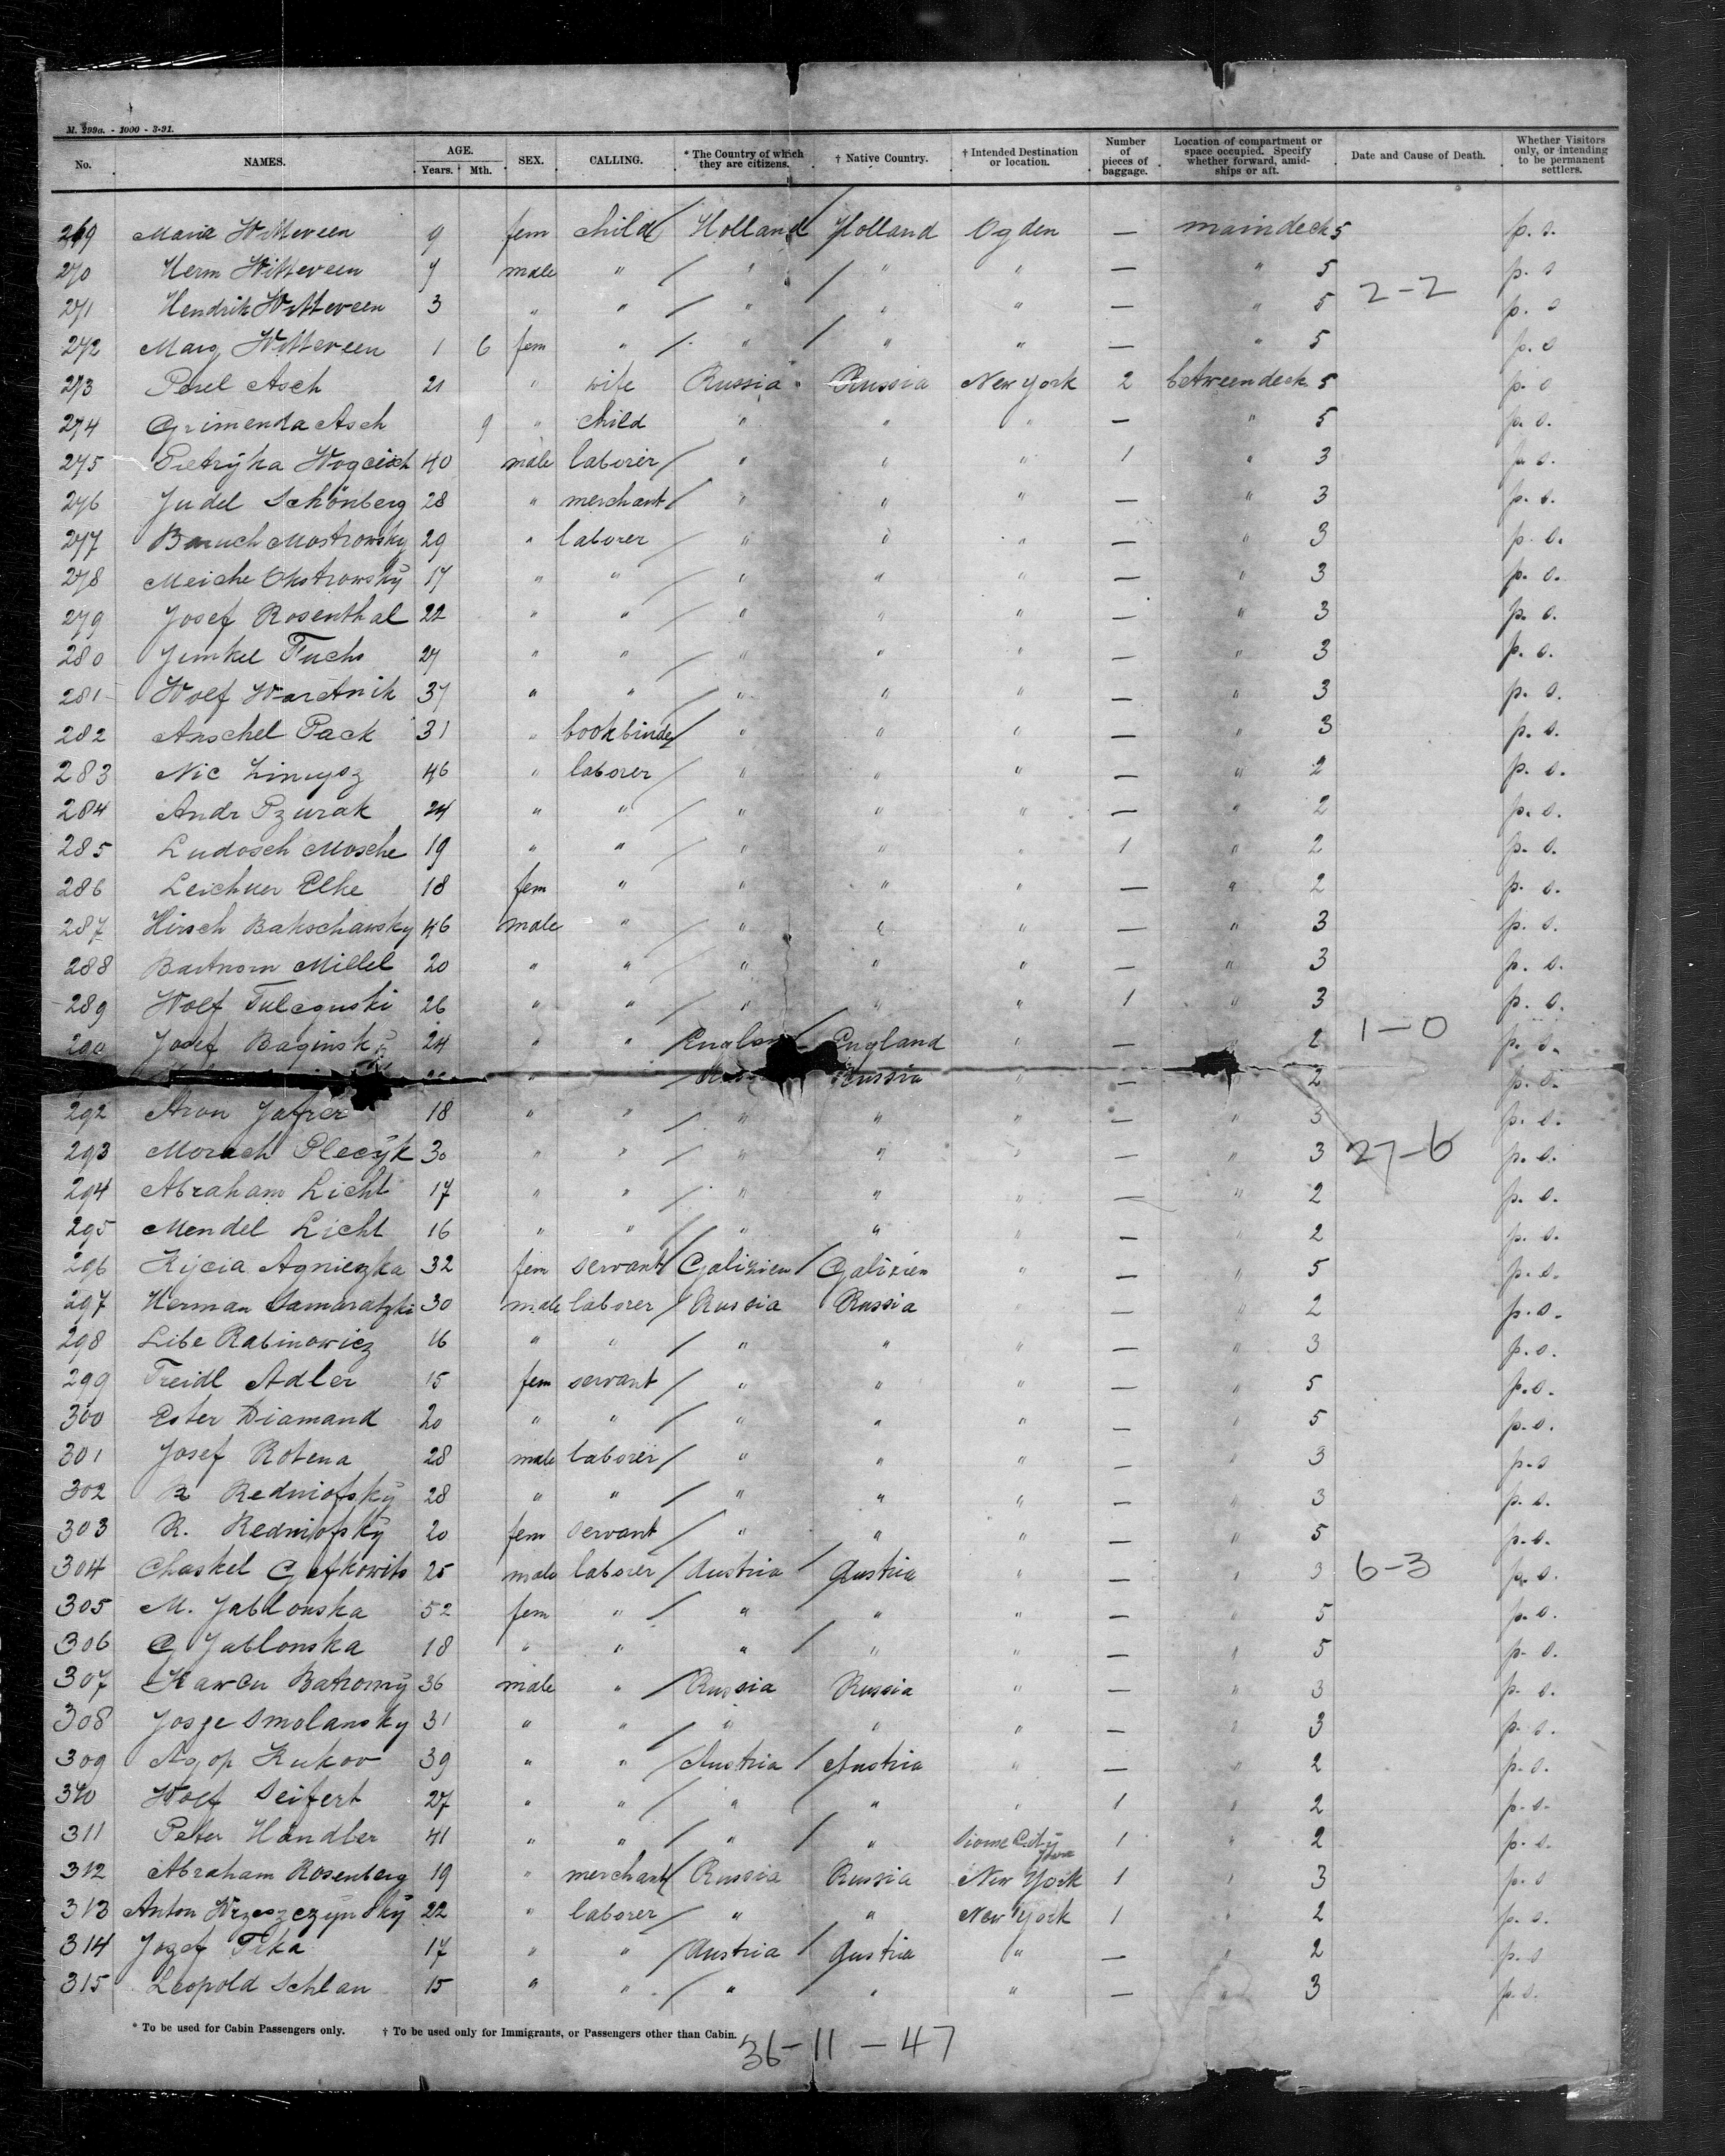 M. 299a. - 1000 - 3-91.
No. NAMES. AGE. Years. Mth. SEX. CALLING. * The Country of which they are citizens. † Native Country. † Intended Destination or location. Number of pieces of baggage. Location of compartment or space occupied. Specify whether forward, amidships or aft. Date and Cause of Death. Whether Visitors only, or intending to be permanent settlers.
269 Maria Witteveen 9 fem child Holland Holland Ogden — maindeck 5 p. s.
270 Herm Witteveen 7 male " " " " — " 5 p. s
2-2
271 Hendrik Witteveen 3 " " " " " — " 5 p. s
272 Marg Witteveen 1 6 fem " " " " — " 5 p. s
273 Perel Asch 21 " wife Russia Russia New York 2 betweendeck 5 p. s
274 Grimenda Asch 9 " child " " " — " 5 p. s.
275 Pietryka 40 male laborer " " " 1 " 3 p. s.
276 Judel Schönberg 28 " merchant " " " — " 3 p. s.
277 Baruch Mostrowsky 29 " laborer " " " — " 3 p. s.
278 Meiche 17 " " " " " — " 3 p. s.
279 Josef Rosenthal 22 " " " " " — " 3 p. s.
280 Jimkel Fuchs 27 " " " " " — " 3 p. s.
281 Wolf Wartnik 37 " " " " " — " 3 p. s.
282 Anschel Pack 31 " bookbinder " " " — " 3 p. s.
283 Nic 46 " laborer " " " — " 2 p. s.
284 Andr Pzurak 24 " " " " " — " 2 p. s.
285 Ludosch Mosche 19 " " " " " 1 " 2 p. s.
286 Leichner Elke 18 fem " " " " — " 2 p. s.
287 Hirsch Bakschawsky 46 male " " " " — " 3 p. s.
288 Millel 20 " " " " " — " 3 p. s.
289 Wolf 26 " " " " " 1 " 3 p. s.
290 Josef Baginsky 24 " " England " — 2 1-0 p. s.
" Russia " — 2 p. s.
292 Aron 18 " " " " " — " 3 p. s.
293 Morach Plecÿk 30 " " " " " — " 3 27-6 p. s.
294 Abraham Licht 17 " " " " " — " 2 p. s.
295 Mendel Licht 16 " " " " " — " 2 p. s.
296 Kijcia Agnieszka 32 fem servant Galizien Galizien " — " 5 p. s.
297 Herman Samaratzki 30 male laborer Russia Russia " — " 2 p. s.
298 Libe Rabinowicz 16 " " " " " — " 3 p. s.
299 Freidl Adler 15 fem servant " " " — " 5 p. s.
300 Ester Diamand 20 " " " " " — " 5 p. s.
301 Josef Rotena 28 male laborer " " " — " 3 p. s
302 Redniofskÿ 28 " " " " " — " 3 p. s.
303 R. Redniofskÿ 20 fem servant " " " — " 5 p. s.
304 Chaskel Gefkowits 25 male laborer Austria Austria " — " 3 6-3 p. s.
305 M. Jablonska 52 fem " " " " — " 5 p. s.
306 G Jablonska 18 " " " " " — " 5 p. s.
307 36 male " Russia Russia " — " 3 p. s.
308 Josge Smolansky 31 " " " " " — " 3 p. s.
309 Agop Kukov 39 " " Austria Austria " — " 2 p. s.
310 Wolf Seifert 27 " " " " " 1 " 2 p. s.
311 Peter Händler 41 " " " " City 1 " 2 p. s.
312 Abraham Rosenberg 19 " merchant Russia Russia New York 1 " 3 p. s
313 Anton Wrzeszczynskÿ 22 " laborer " " New York 1 " 2 p. s.
314 Jozef 17 " " Austria Austria " — " 2 p. s
315 Leopold Schlan 15 " " " " " — " 3 p. s.
* To be used for Cabin Passengers only. † To be used only for Immigrants, or Passengers other than Cabin.
36-11-47